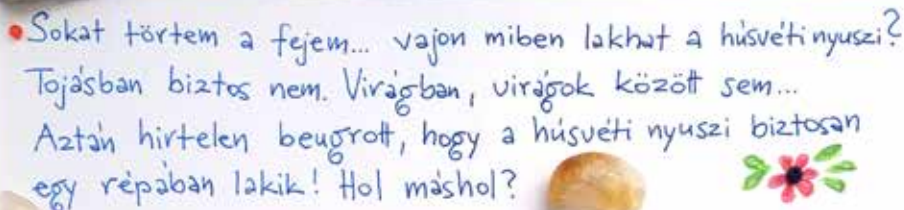 • Sokat törtem a fejem... vajon miben lakhat a húsvéti nyuszi?
Tojásban biztos nem. Virágban, virágok között sem...
Aztán hirtelen beugrott, hogy a húsvéti nyuszi biztosan
egy répában lakik! Hol máshol?